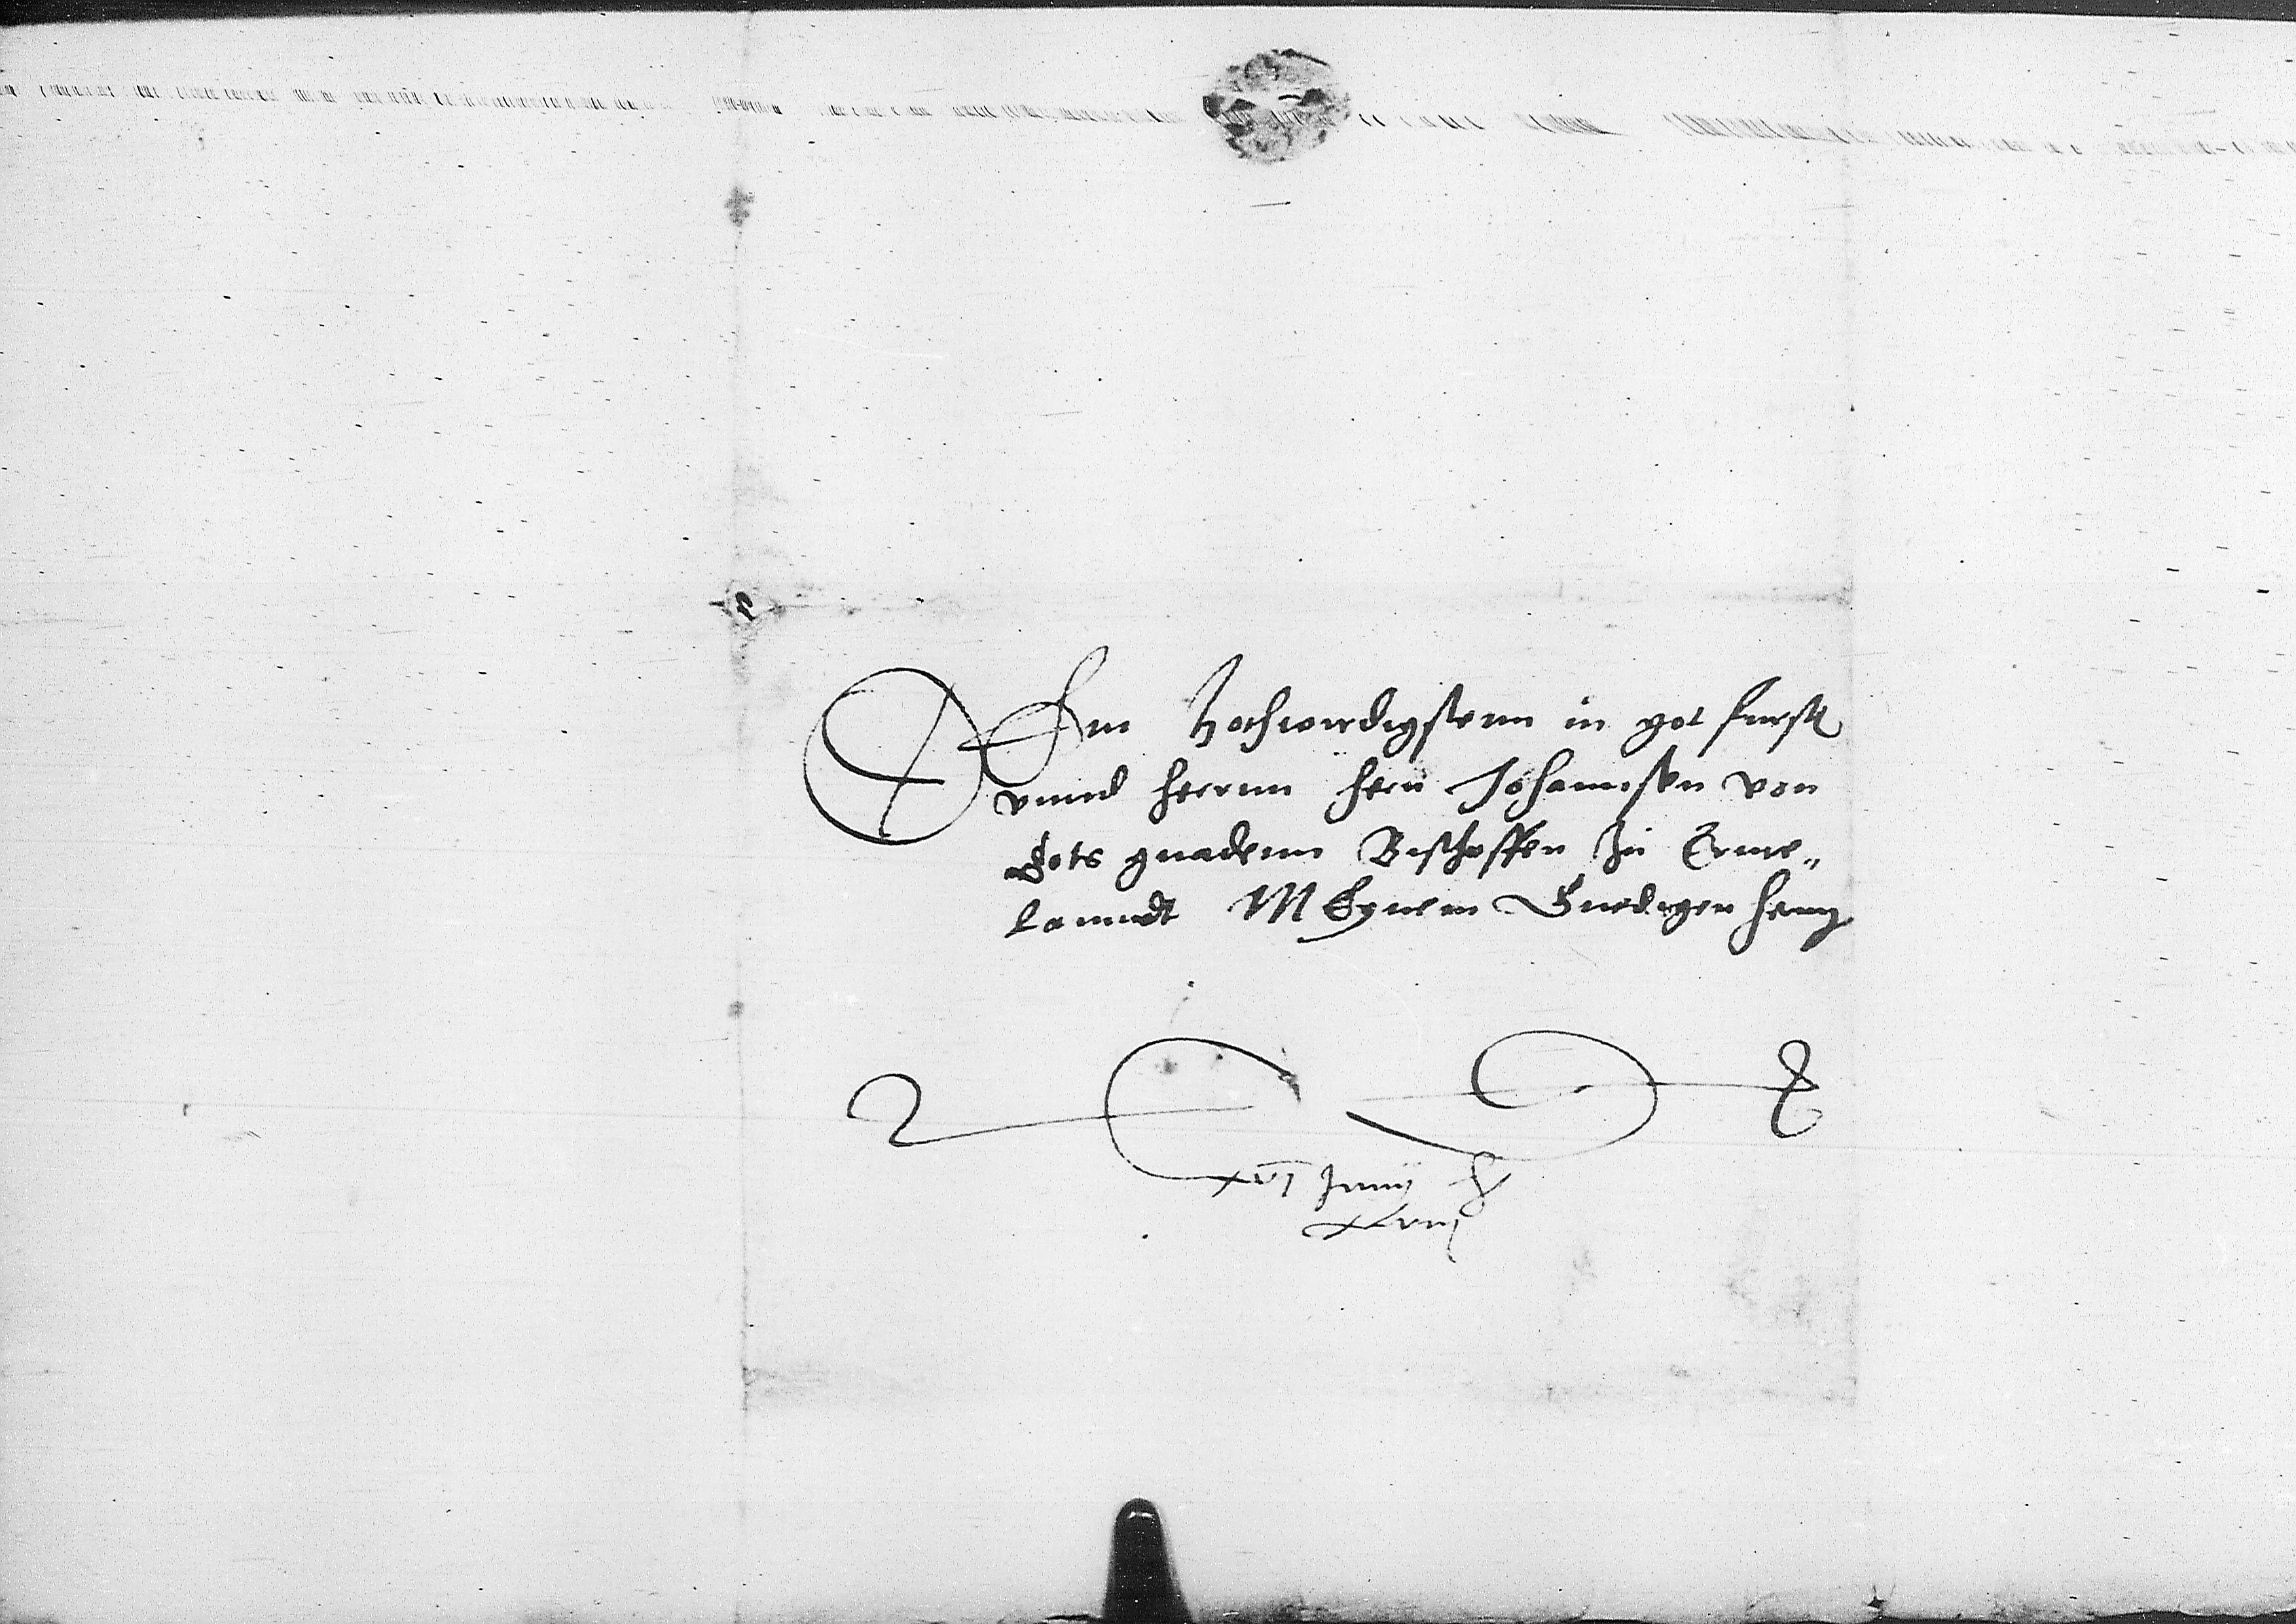 DEm hochwirdigstenn in got furst
vnnd herrnn hern Johannsen von
Gots gnadenn Bischoffen Zu Erme„
lanndt MEynem Gnedigen hern
xvi Junij
xlviij